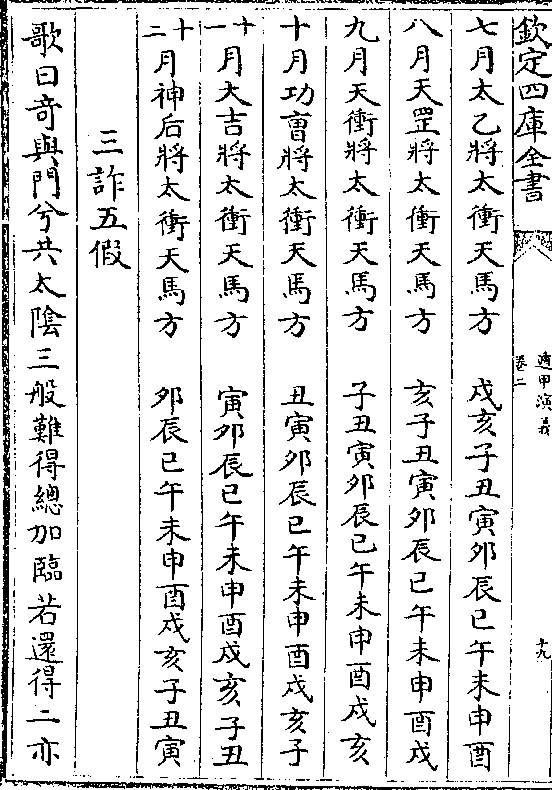 欽定四庫全書
遁甲演義
卷二
十九
七月太乙將太衝天馬方　戌亥子丑寅卯辰巳午未申酉
八月天罡將太衝天馬方　亥子丑寅卯辰巳午未申酉戌
九月天衝將太衝天馬方　子丑寅卯辰巳午未申酉戌亥
十月功曹將太衝天馬方　丑寅卯辰巳午未申酉戌亥子
十一月大吉將太衝天馬方　寅卯辰巳午未申酉戌亥子丑
十二月神后將太衝天馬方　卯辰巳午未申酉戌亥子丑寅
三詐五假
歌曰奇與門兮共太陰三般難得總加臨若還得二亦